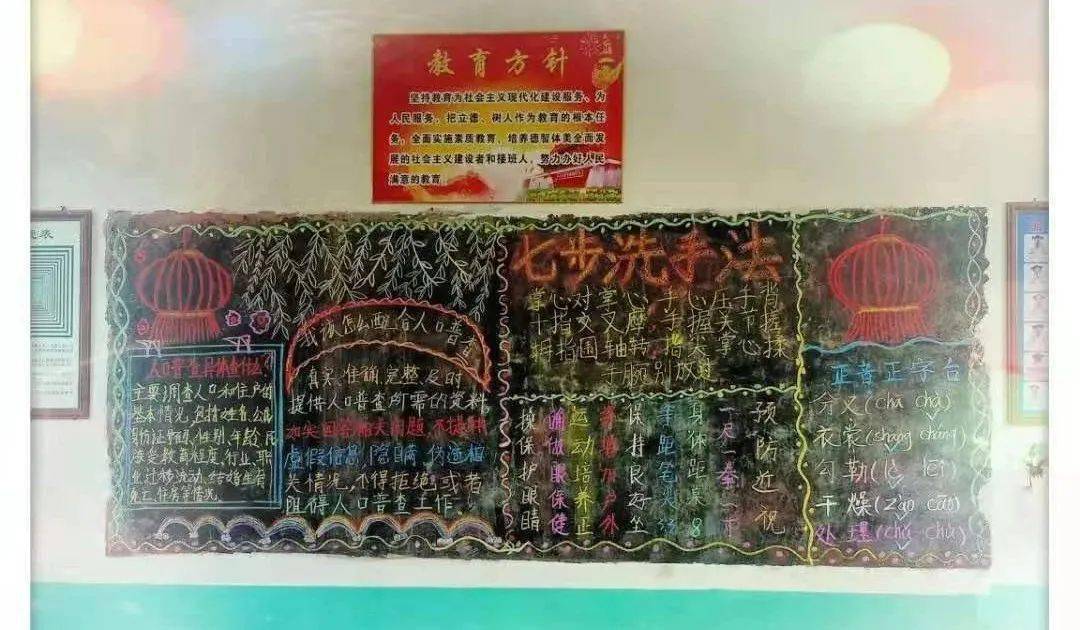 教育方针
坚持教育为社会主义现代化建设服务、为
人民服务，把立德、树人作为教育的根本任
务，全面实施素质教育，培养德智体美全面发
展的社会主义建设者和接班人，努力办好人民
满意的教育
人口普查具体查什么?
主要调查人口和住户的
基本情况，包括姓名，公民
身份证号码，性别，年龄，民
族，受教育程度，行业，职
业，迁移流动，婚姻生育
死亡，住房等情况
我该怎么配合人口普查
真实，准确，完整，及时
提供人口普查所需的资料
如实回答相关问题，不提供
虚假信息，隐瞒，伪造相
关情况，不得拒绝或者
阻碍人口普查工作。
七步洗手法
掌心对掌心手心压手背
十指交叉摩手握手节
拇指围轴转指尖掌心揉
手腕别放过
预防近视
一尺一拳一寸
身体距桌
手距笔尖
保持良好坐
户外
运动培养正
确做眼保健
操保护眼睛
正音正字台
分叉(chā chà)
衣裳(shang cháng)
勾勒(lè lēi)
干燥(zào cāo)
处理(chǔ chù)